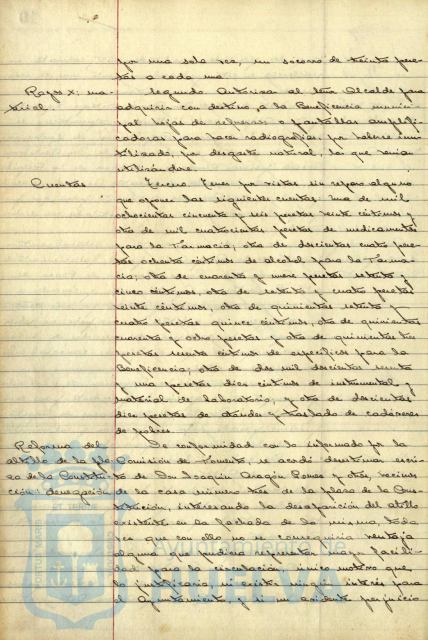 por una sola vez, un socorro de treinta pese-
tas a cada una.
Rayos X: ma-
terial.
Segundo. Autorizar al señor Alcalde para
adquirir con destino, a la Beneficencia munici-
pal hojas de refuerzo o pantallas amplifi-
cadoras para hacer radiografías, por haberse inu-
tilizado, por desgaste natural, las que venían
utilizándose.
Cuentas
Tercero. Tener por vistas sin reparo alguno
que oponer las siguientes cuentas: una de mil
ochocientas cincuenta y seis pesetas veinte céntimos y
otra de mil cuatrocientas pesetas de medicamentos
para la Farmacia; otra de doscientas cuatro pese-
tas ochenta céntimos de alcohol para la Farma-
cia; otra de cuarenta y nueve pesetas setenta y
cinco céntimos, otra de setenta y cuatro pesetas
veinte céntimos, otra de quinientas setenta y
cuatro pesetas quince céntimos, otra de quinientas
cuarenta y ocho pesetas y otra de quinientas tres
pesetas sesenta céntimos de específicos para la
Beneficencia; otra de dos mil doscientas
y una pesetas diez céntimos de instrumental y
material de laboratorio; y otra de doscientas
diez pesetas de ataúdes y traslado de cadáveres
de pobres.
Reforma del
altillo de la pla-
za de la Constitu-
ción: denegación
De conformidad con lo informado por la
Comisión de Fomento, se acordó desestimar escri-
to de Don Joaquín Aragón Gómez y otros, vecinos
de la casa número tres de la plaza de la Cons-
titución, interesando la desaparición del altillo
existente en la fachada de la misma, toda
vez que con ello no se conseguiría ventaja
alguna que pudiera representar mayor facili-
dad para la circulación, único motivo que
lo justificaría, ni existe ningún interés para
el Ayuntamiento, y sí un evidente perjuicio